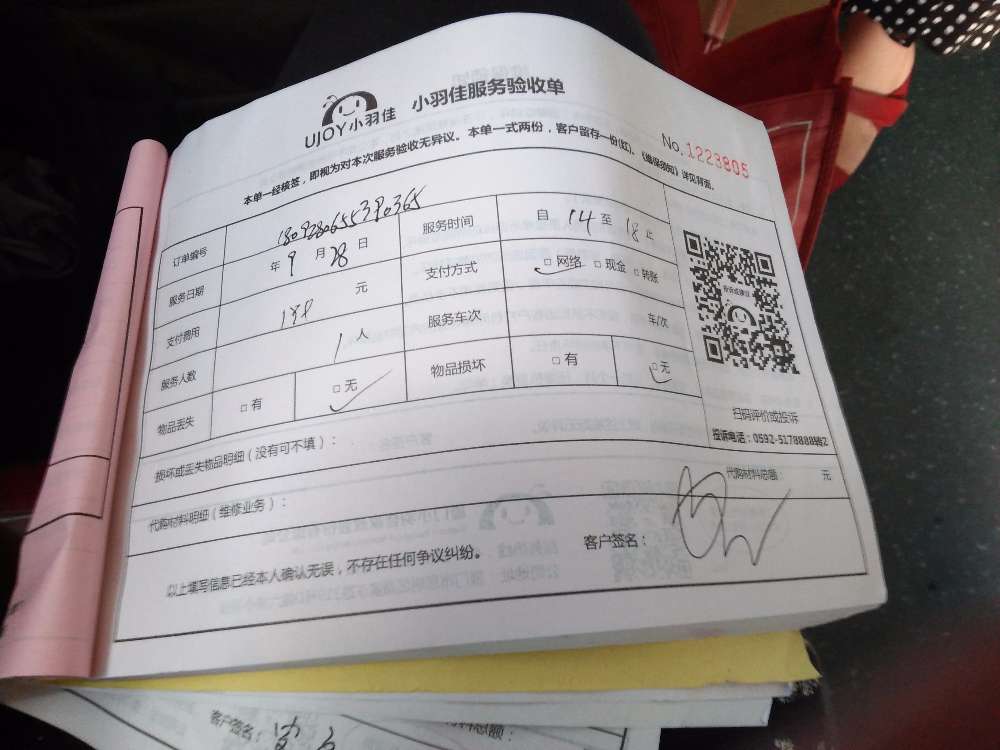 UJOY小羽佳 小羽佳服务验收单
No.1223805
本单一经核签，即视为对本次服务验收无异议。本单一式两份，客户留存一份(红)。《维保须知》详见背面。
订单编号 服务时间 自 14 至 18 止
服务日期 年 9 月 28 日 支付方式 □网络 □现金 □转账
支付费用 元 服务车次 车/次
服务人数 1 人 物品损坏 □有 □无
物品丢失 □有 □无
扫码评价或投诉
损坏或丢失物品明细（没有可不填）：
代购材料明细（维修业务）： 代购材料总额 元
以上填写信息已经本人确认无误，不存在任何争议纠纷。 客户签名：
客户签名：